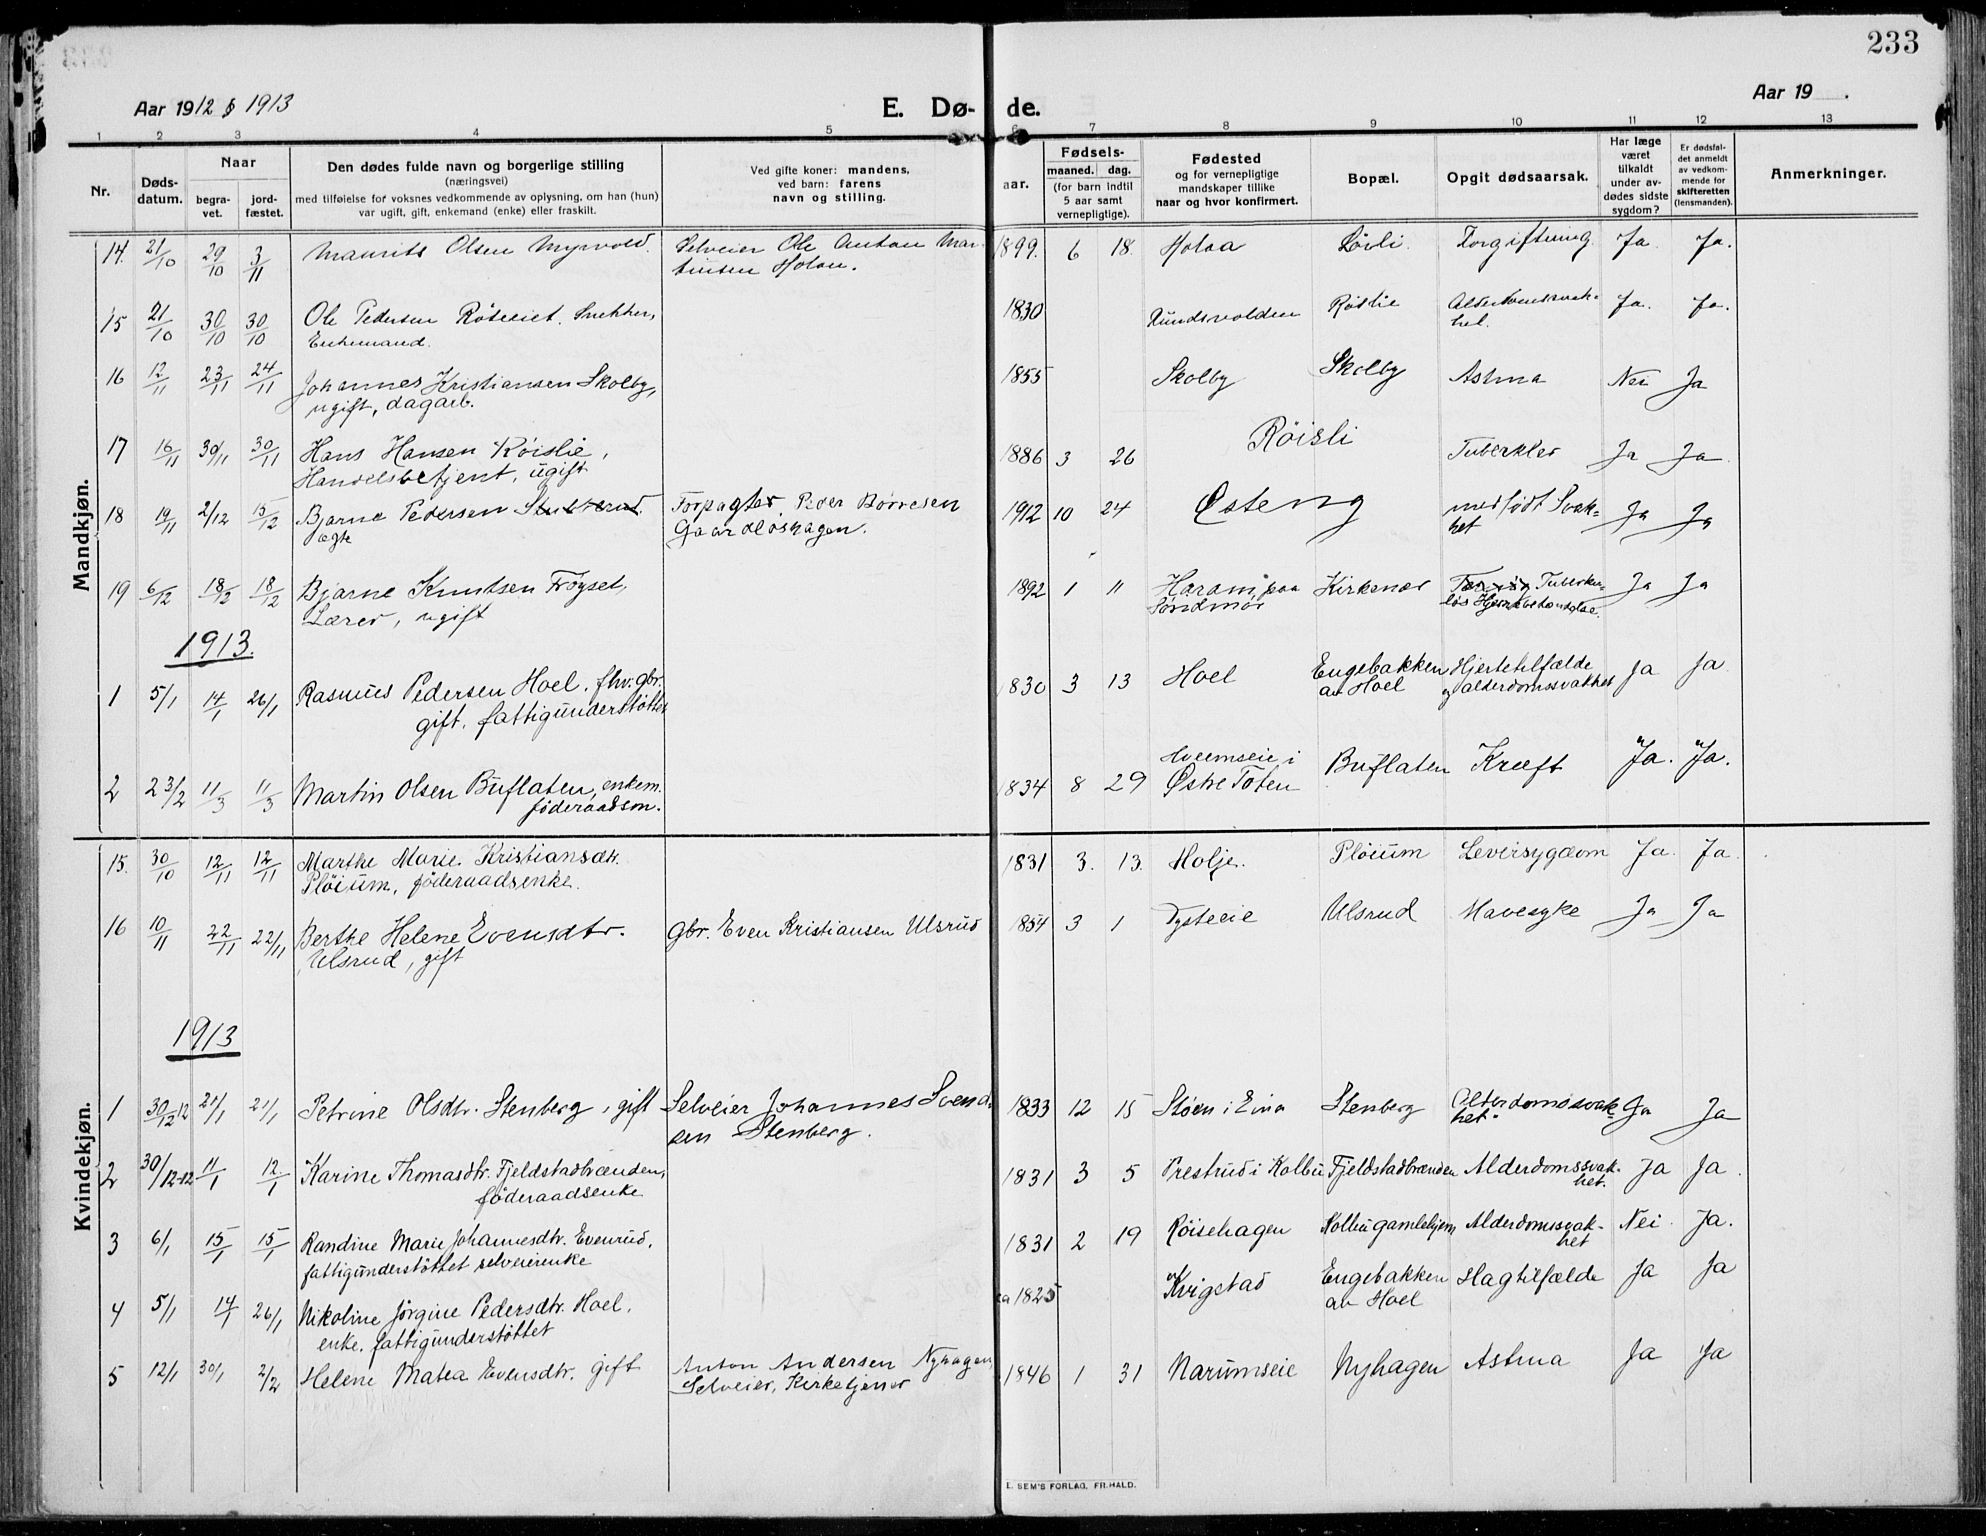 233
Aar 1912 & 1913
E. Dø-
de.
Aar 19 .
1 2 3 4 5 6 7 8 9 10 11 12 13
Nr.
Døds-
datum.
Naar
begra-
vet.
jord-
fæstet.
Den dødes fulde navn og borgerlige stilling
(næringsvei)
med tilføielse for voksnes vedkommende av oplysning, om han (hun)
var ugift, gift, enkemand (enke) eller fraskilt.
Ved gifte koner: mandens,
ved barn: farens
navn og stilling.
aar.
Fødsels-
maaned. dag.
(for barn indtil
5 aar samt
vernepligtige).
Fødested
og for vernepligtige
mandskaper tillike
naar og hvor konfirmert.
Bopæl.
Opgit dødsaarsak.
Har læge
været
tilkaldt
under av-
dødes sidste
sygdom?
Er dødsfal-
det anmeldt
av vedkom-
mende for
skifteretten
(lensmanden).
Anmerkninger.
Mandkjøn.
14. 21/10 29/10 3/11 Maurits Olsen Myrvold. Selveier Ole Anton Mar- 1899. 6 18. Holaa Løvli. Forgiftning Ja. Ja.
tinsen Holaa.
15 21/10 30/10 30/10 Ole Pedersen Røiseiet. Snekker, 1830 Rundsvolden Røislie Alderdomssvak- Ja. Ja.
Enkemand. het.
16 12/11 23/11 24/11 Johannes Kristiansen Skolby, 1855 Skolby Skolby Astma Nei Ja
ugift, dagarb.
17 16/11 30/11 30/11 Hans Hansen Røislie, 1886 3 26 Røisli Tuberkler Ja Ja
Handelsbetjent, ugift
18 19/11 2/12 15/12 Bjarne Pedersen Forpagter Peder Børresen 1912 10 24 Østeng medfødt Svak- Ja Ja
ægte Gaardløshagen. het
19 6/12 18/12 18/12 Bjarne Knutsen Frøyset, 1892 1 11 Haram paa Kirkenær Tuberku- Ja Ja
Lærer, ugift Søndmør løs Hjernebetændelse.
1913.
1 5/1 14/1 26/1 Rasmus Pedersen Hoel, fhv. gbr. 1830 3 13 Hoel Engebakken Hjertetilfælde Ja Ja
gift. fattigunderstøttet av Hoel og alderdomssvakhet
2 23/2 11/3 11/3 Martin Olsen Buflaten, enkem. 1834 8 29 Hveemseie i Buflaten Kræft Ja. Ja.
føderaadsm. Østre Toten
Kvindekjøn.
15. 30/10 12/11 12/11 Marthe Marie Kristiansdtr. 1831 3. 13. Holje. Pløium Leversygdom Ja. Ja.
Pløium, føderaadsenke.
16 10/11 22/11 22/11 Berthe Helene Evensdtr. gbr. Even Kristiansen Ulsrud 1854 3 1 Tysteeie Ulsrud Mavesyke Ja Ja
Ulsrud, gift
1913
1 30/12 12 21/1 21/1 Petrine Olsdtr. Stenberg, gift Selveier Johannes Svend- 1833 12 15 Støen i Eina Stenberg Alderdomssvak- Ja Ja
sen Stenberg. het.
2 30/12-12 11/1 12/1 Karine Thomasdtr. Fjeldstadbrænden, 1831 3 5 Prestrud i Kolbu Fjeldstadbrænden Alderdomssvak- Ja Ja
føderaadsenke het.
3 6/1 15/1 15/1 Randine Marie Johannesdtr. Evenrud, 1831 2 19 Røisehagen Kolbu gamlehjem Alderdomssvak- Nei Ja.
fattigunderstøttet selveierenke het
4 5/1 14/1 26/1 Nikoline Jørgine Pedersdtr. Hoel, ca 1825 Kvigstad Engebakken Slagtilfælde Ja Ja
enke. fattigunderstøttet av Hoel
5 12/1 30/1 2/2 Helene Matea Evensdtr. gift Anton Andersen Nyhagen, 1846 1 31 Narumseie Nyhagen Astma Ja Ja
Selveier, Kirketjener
E. SEM'S FORLAG, FR.HALD.